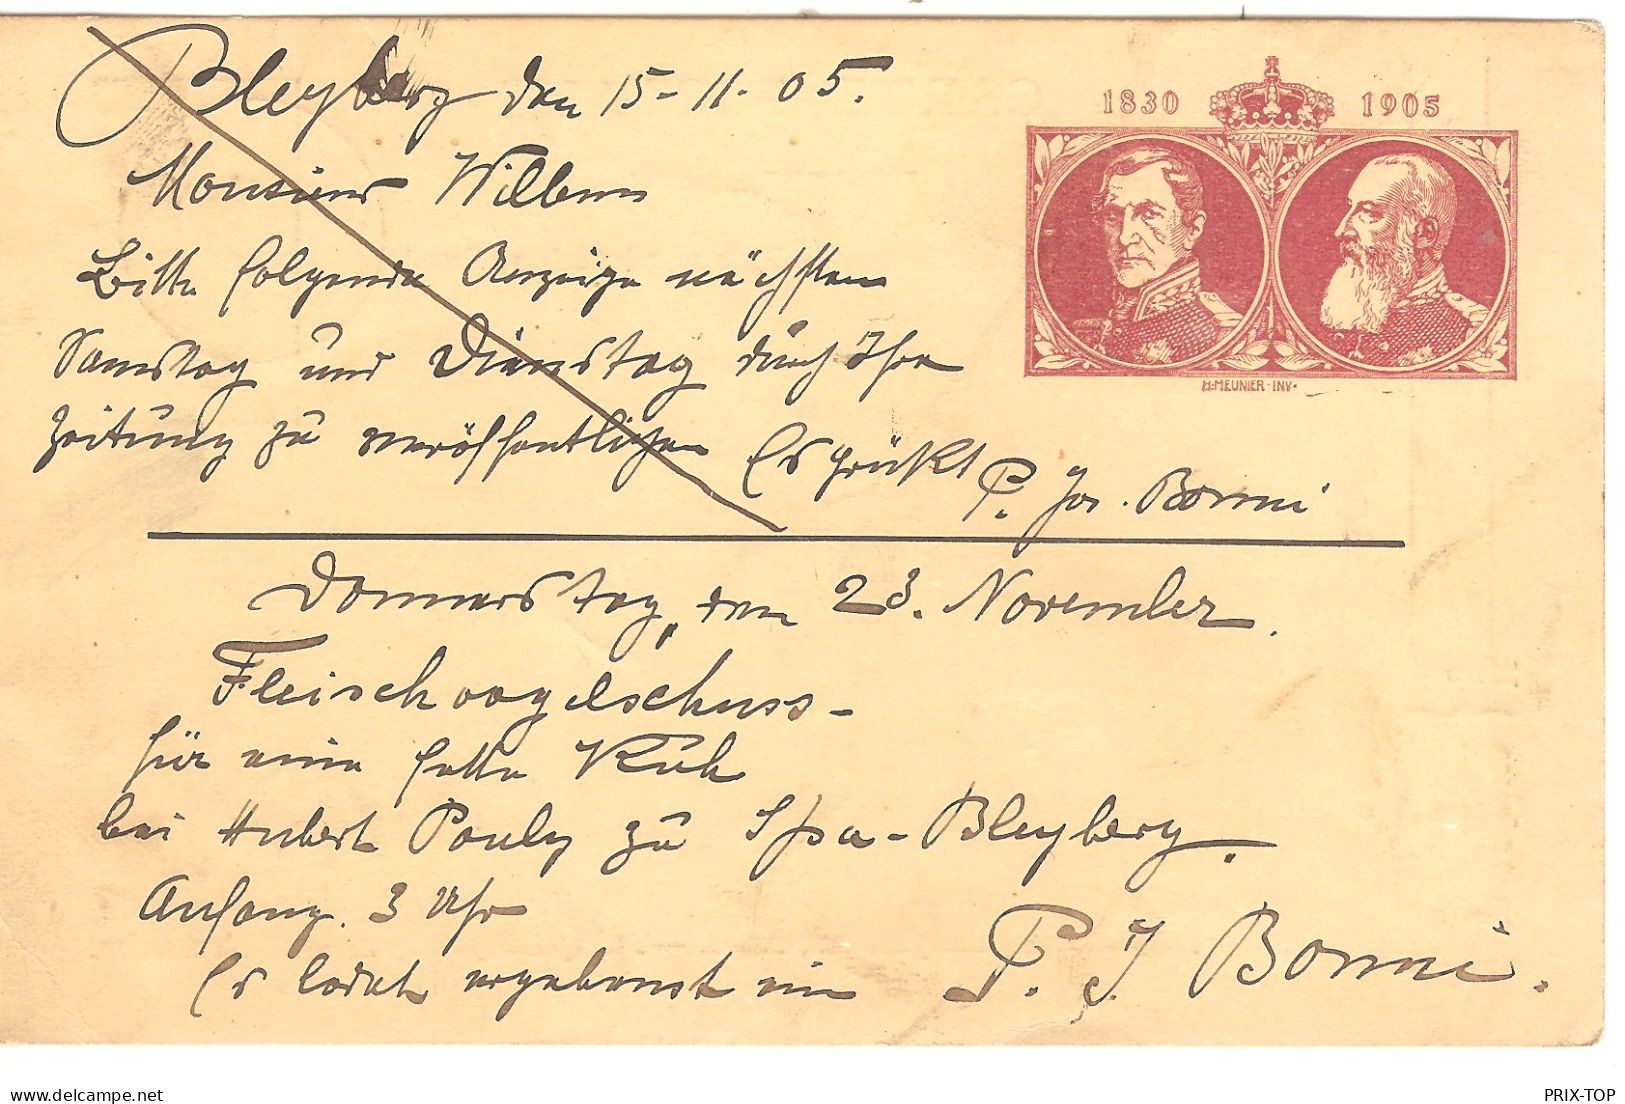 Bleyberg den 15-11-05.
1830 1905
Monsieur Willems
Bitte folgende Anzeige nächsten
Samstag und Dienstag durch Ihre
H·MEUNIER·INV·
Zeitung zu veröffentlichen Es grüßt
P. Jos. Bonni
Donnerstag, den 23. November.
Fleischvogelschuss-
für eine fette Kuh
bei Hubert Pauly zu Spa-Bleyberg.
Anfang. 3 Uhr
Es ladet ergebenst ein P. J. Bonni.
PRIX-TOP